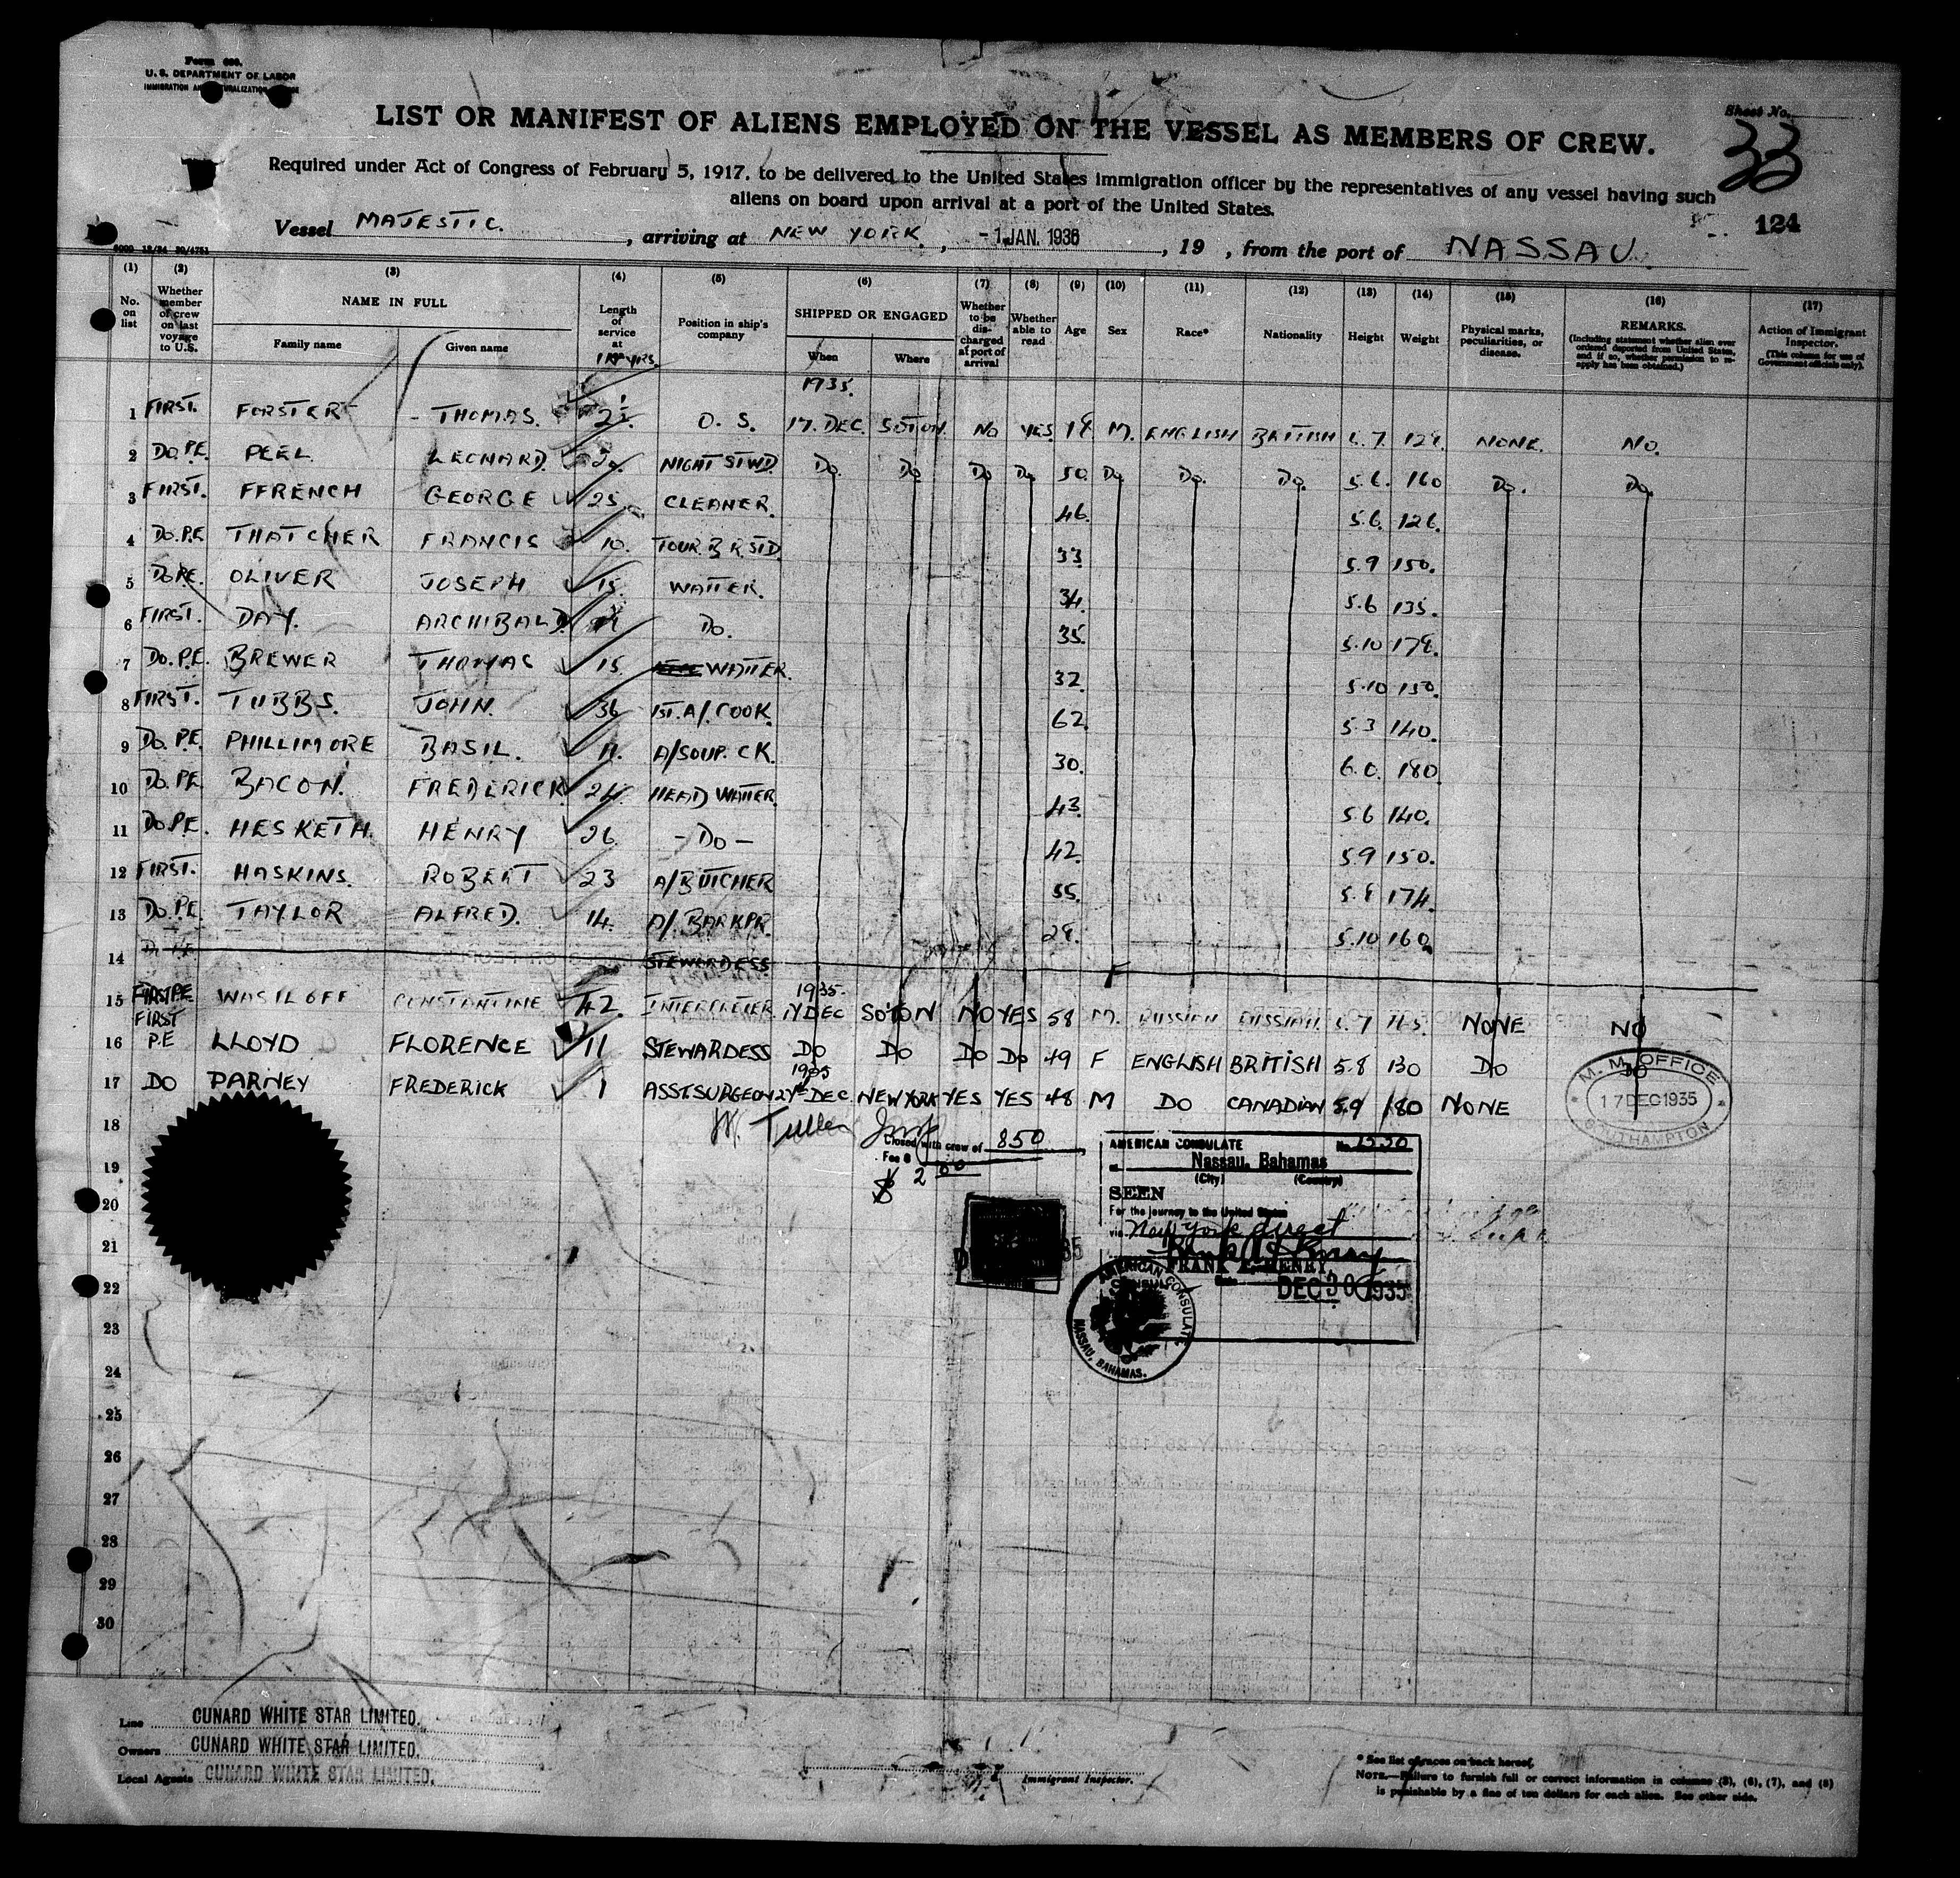 Form 680.
U. S. DEPARTMENT OF LABOR
IMMIGRATION AND NATURALIZATION
LIST OR MANIFEST OF ALIENS EMPLOYED ON THE VESSEL AS MEMBERS OF CREW.
Sheet No.
33
Required under Act of Congress of February 5, 1917, to be delivered to the United States immigration officer by the representatives of any vessel having such
aliens on board upon arrival at a port of the United States.
124
Vessel MAJESTIC. , arriving at NEW YORK. , -1 JAN. 1936 , 19 , from the port of NASSAU.
(1) (2) (3) (4) (5) (6) (7) (8) (9) (10) (11) (12) (13) (14) (15) (16) (17)
No. on list
Whether member of crew on last voyage to U.S.
NAME IN FULL
Family name
Given name
Length of service at
YRS.
Position in ship's company
SHIPPED OR ENGAGED
When
Where
Whether to be discharged at port of arrival
Whether able to read
Age
Sex
Race*
Nationality
Height
Weight
Physical marks, peculiarities, or disease.
REMARKS.
(Including statement whether alien ever ordered deported from United States, and if so, whether permission to re-apply has been obtained.)
Action of Immigrant Inspector.
(This column for use of Government officials only).
1935.
1 FIRST. FORSTER THOMAS. O. S. 17. DEC. SOTON. NO YES. M. ENGLISH BRITISH 5.7. NONE. NO.
2 DO.P.E. PEEL LEONARD. NIGHT STWD. DO. DO DO DO 50. DO DO. DO. 5.6. 160 DO. DO.
3 FIRST. FFRENCH GEORGE 25. CLEANER. 46. 5.6. 126.
4 DO.P.E. THATCHER FRANCIS 10. TOUR. B.R. STD. 33 5.9 150.
5 DO P.E. OLIVER JOSEPH 15. WAITER. 34. 5.6 135.
6 FIRST. DAY. ARCHIBALD. DO. 35. 5.10 178.
7 DO.P.E. BREWER THOMAS 15. WAITER. 32. 5.10 150.
8 FIRST. TUBBS. JOHN. 36 1ST. A/. COOK. 62. 5.3 140.
9 DO. P.E. PHILLIMORE BASIL. 11. A/SOUP. CK. 30. 6.0. 180.
10 DO.P.E. BACON. FREDERICK 24. HEAD WAITER. 43. 5.6 140.
11 DO P.E. HESKETH. HENRY 26. - DO - 42. 5.9 150.
12 FIRST. HASKINS. ROBERT 23 A/BUTCHER 55. 5.8 174.
13 DO.P.E. TAYLOR ALFRED. 14. A/. BARKPR. 28. 5.10 160.
14 STEWARDESS F
1935.
15 FIRST P.E WASILOFF CONSTANTINE 42. INTERPRETER 17 DEC SO'TON NO YES 58 M. RUSSIAN RUSSIAN. 5.7 NONE NO
16 FIRST P.E LLOYD FLORENCE 11 STEWARDESS DO DO DO DO 49 F ENGLISH BRITISH 5.8 130 DO DO
1935
17 DO PARNEY FREDERICK 1 ASST.SURGEON DEC. NEW YORK YES YES 48 M DO CANADIAN 5.9 180 NONE
M. M. OFFICE
17 DEC 1935
SOUTHAMPTON
18
Closed with crew of 850
Fee $
$ 2 00
AMERICAN CONSULATE No.
at Nassau, Bahamas
(City) (Country)
SEEN
For the journey to the United States
via New York direct
FRANK A. HENRY,
Date DEC 30 1935
AMERICAN CONSULATE
NASSAU, BAHAMAS.
19
20
21
22
23
24
25
26
27
28
29
30
Line CUNARD WHITE STAR LIMITED.
Owners CUNARD WHITE STAR LIMITED.
Local Agents CUNARD WHITE STAR LIMITED.
Immigrant Inspector.
* See list of races on back hereof.
NOTE.—Failure to furnish full or correct information in columns (3), (6), (7), and (8)
is punishable by a fine of ten dollars for each alien. See other side.